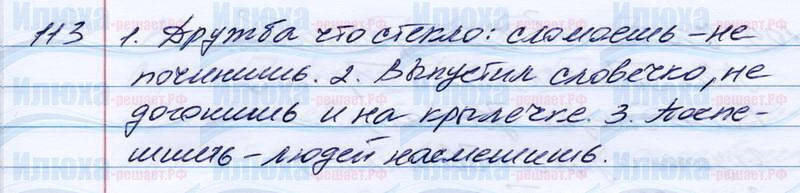 113 1. Дружба что стекло: сломаешь – не
починишь. 2. Выпустил словечко, не
догонишь и на крылечке. 3. Поспе-
шишь – людей насмешишь.